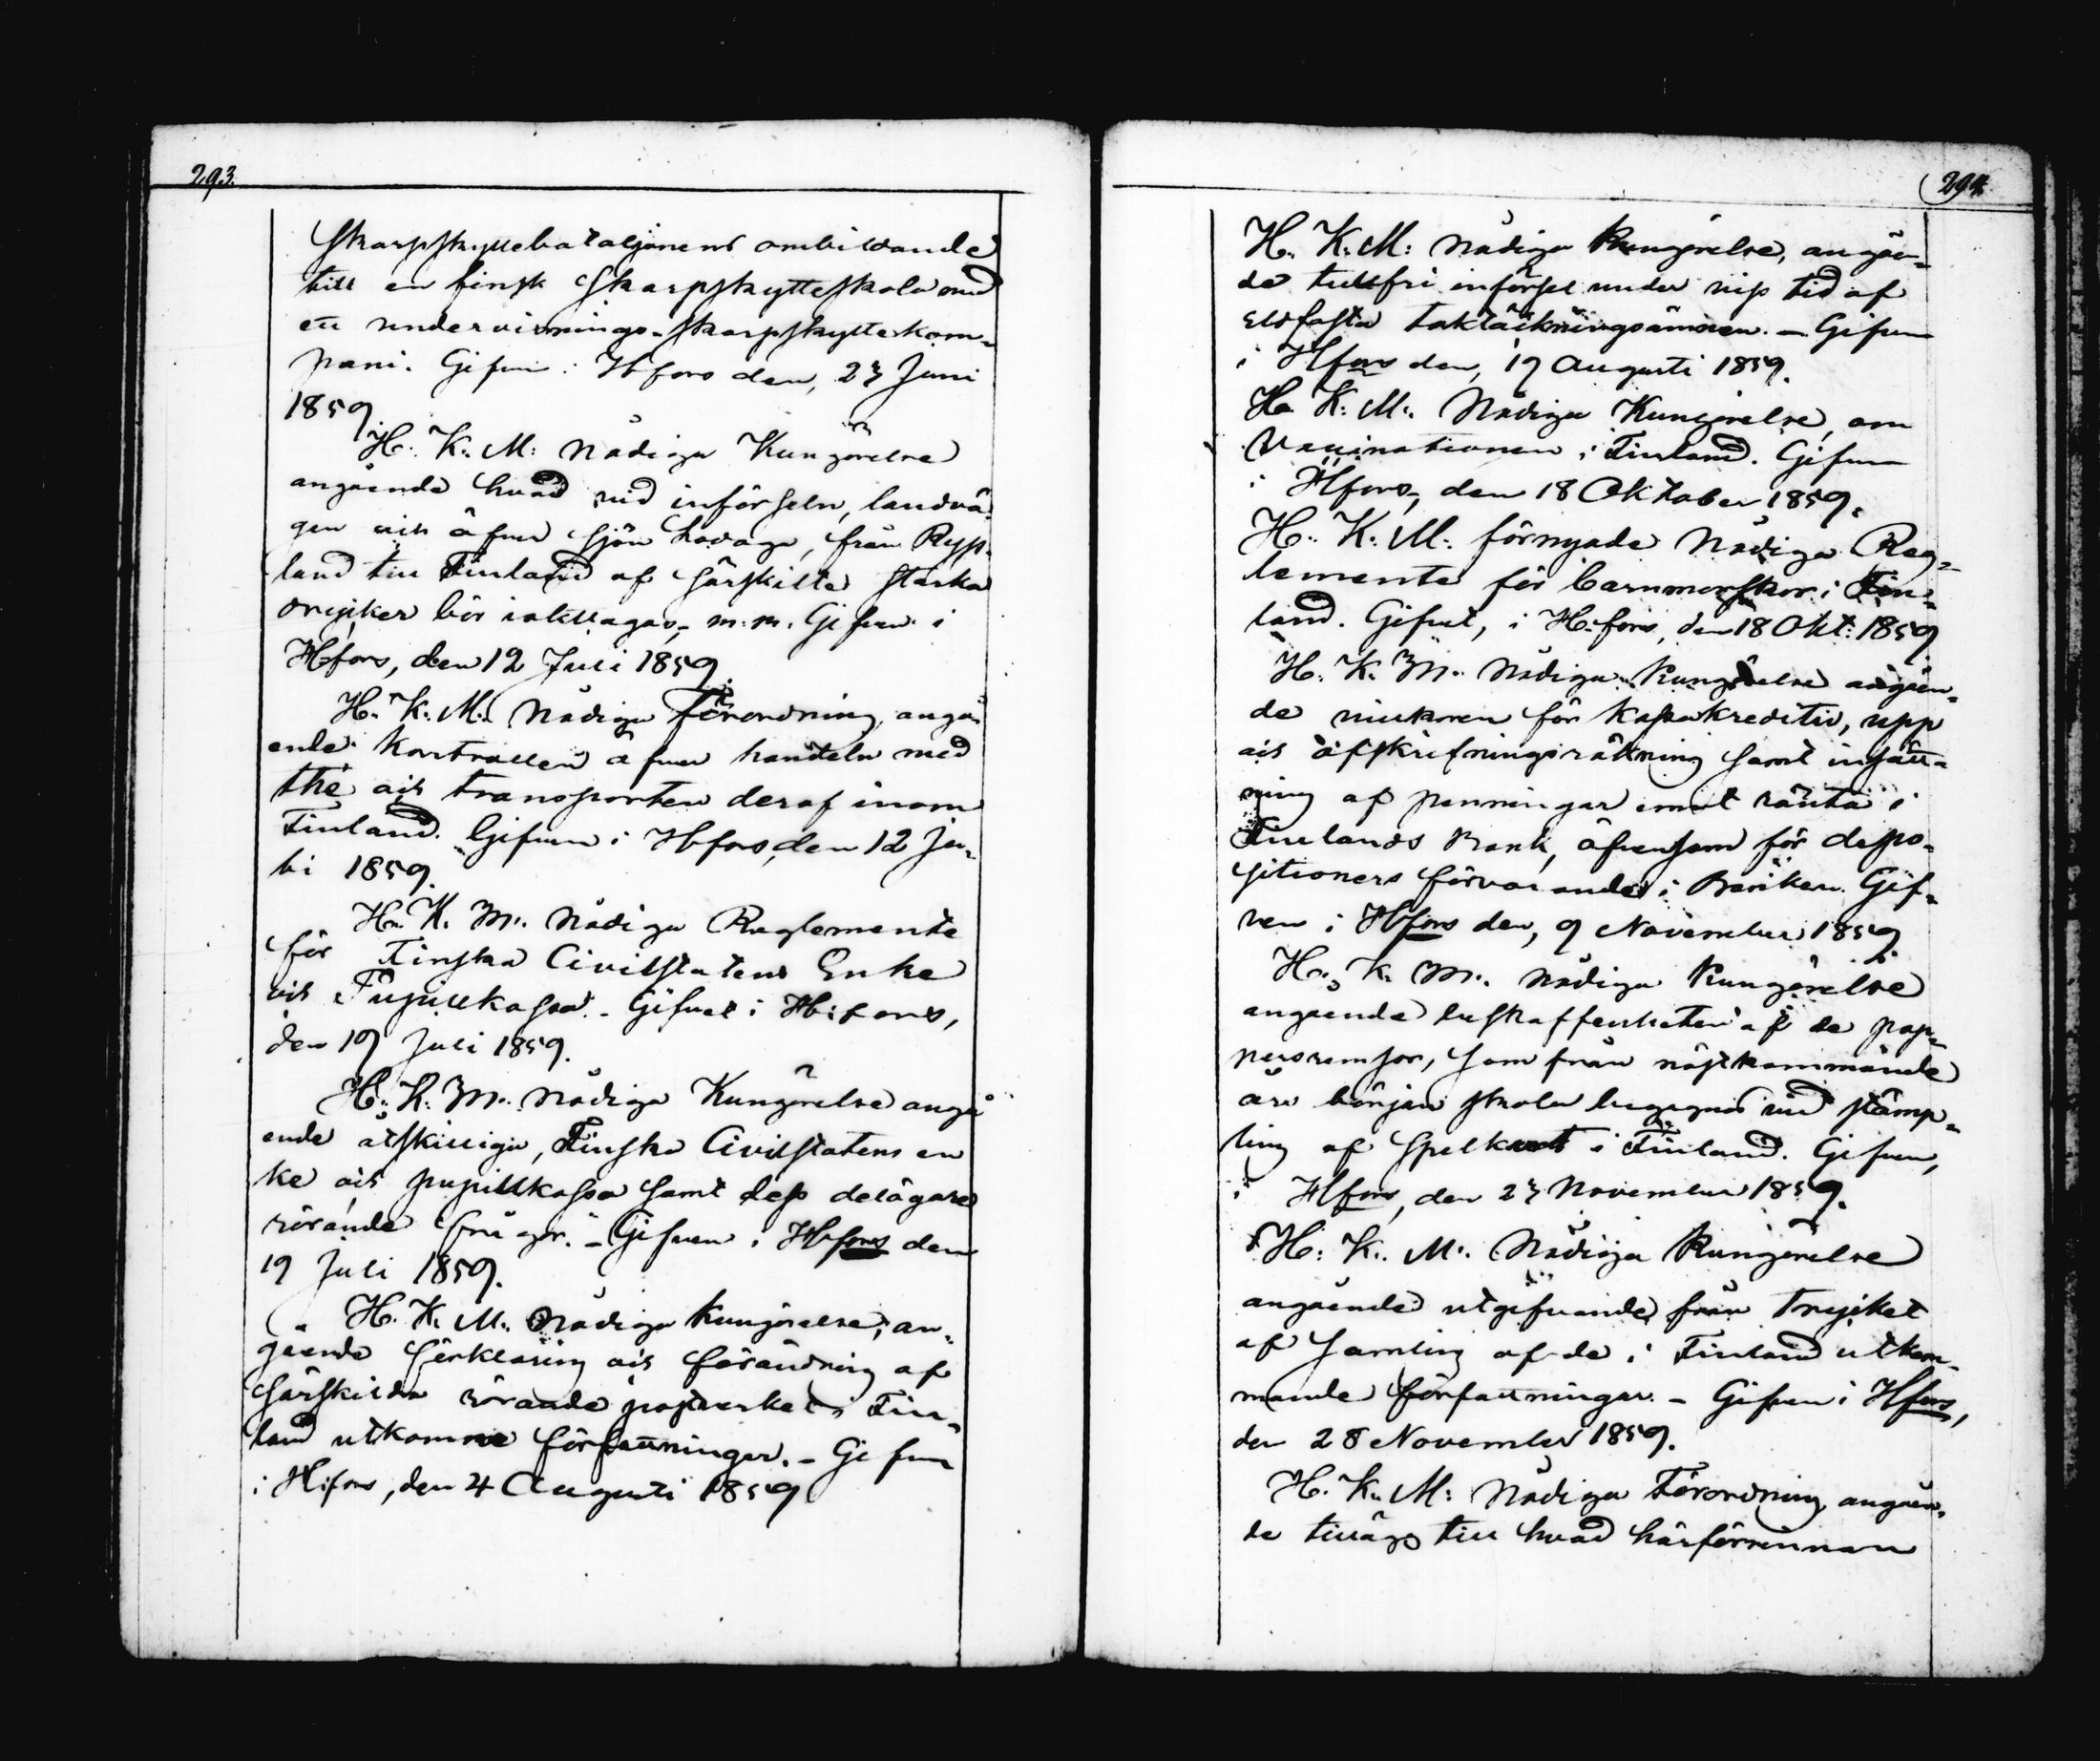 293.
Skarpskyttebataljonens ombildande
till en finsk Skarpskytteskola med
ett undervisnings-skarpskyttekom-
pani. Gifven i Hfors den, 23 Juni
1859.
H. K. M: Nådiga Kungörelse
angående hvad vid införseln, landvä-
gen och öfver sjön Ladoga, från Ryss-
land till Finland af särskilte starka
drycker bör iakttagas, m: m. Gifven i
Hfors, den 12 Juli 1859.
H. K. M: Nådiga Förordning, angå
ende kontrollen öfver handeln med
thé och transporten deraf inom
Finland. Gifven i Hfors, den 12 Ju-
li 1859.
H. K. M. Nådiga Reglemente
för Finska Civilstatens Enke
och Pupillkassa. - Gifvet i H:fors,
den 19 Juli 1859.
H. K. M. Nådiga Kungörelse angå
ende åtskilliga, Finska Civilstatens en
ke och pupillkassa samt dess delägare
rörande frågor. - Gifven i Hfors den
19 Juli 1859.
H. K. M. Nådiga kungörelse, an-
gående förklaring och förändring af
särskilda rörande postverket i Fin-
land utkomne författningar. - Gifven
i H:fors, den 4 Augusti 1859
294.
H. K. M: Nådiga Kungörelse, angåen-
de tullfri införsel under viss tid af
eldfasta taktäckningsämnen. - Gifven
i Hfors den, 19 Augusti 1859.
H. K: M:. Nådiga Kungörelse, om
Vaccinationen i Finland. Gifven
i Hfors, den 18 Oktober 1859.
H. K. M: förnyade Nådiga Reg-
lemente för barnmorskor i Fin-
land. Gifvet, i H:fors, den 18 Okt: 1859
H. K. M. Nådiga Kungörelse angåen-
de vilkoren för kassakreditiv, upp
och afskrifningsräkning samt insätt-
ning af penningar emot ränta i
Finlands Bank, äfvensom för depo-
sitioners förvarande i Banken. Gif-
ven i Hfors den, 9 November 1859.
H. K. M. Nådiga Kungörelse
angående beskaffenheten af de pap-
persremsor, som från nästkommande
års början skola begagnas vid stämp-
ling af Spelkort i Finland. Gifven,
i Hfors, den 23 November 1859.
H: K. M: Nådiga Kungörelse
angående utgifvande från trycket
af Samling af de i Finland utkom-
mande författningar. - Gifven i Hfors,
den 28 November 1859.
H. K. M: Nådiga Förordning angåen-
de tillägg till hvad härförinnan